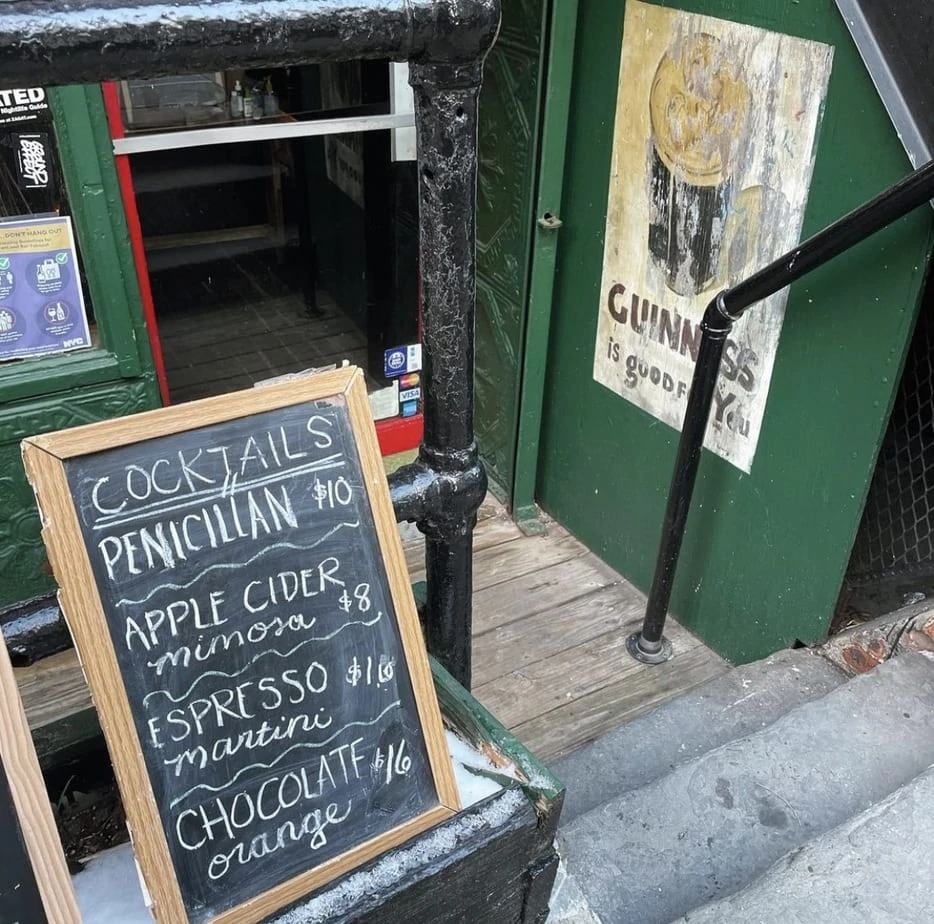 TED
Nightlife Guide
DON'T HANG OUT
NYC
VISA
GUINNESS
is GOOD FOR
YOU
COCKTAILS
PENICILLAN $10
APPLE CIDER
mimosa $8
ESPRESSO
martini $16
CHOCOLATE $16
orange